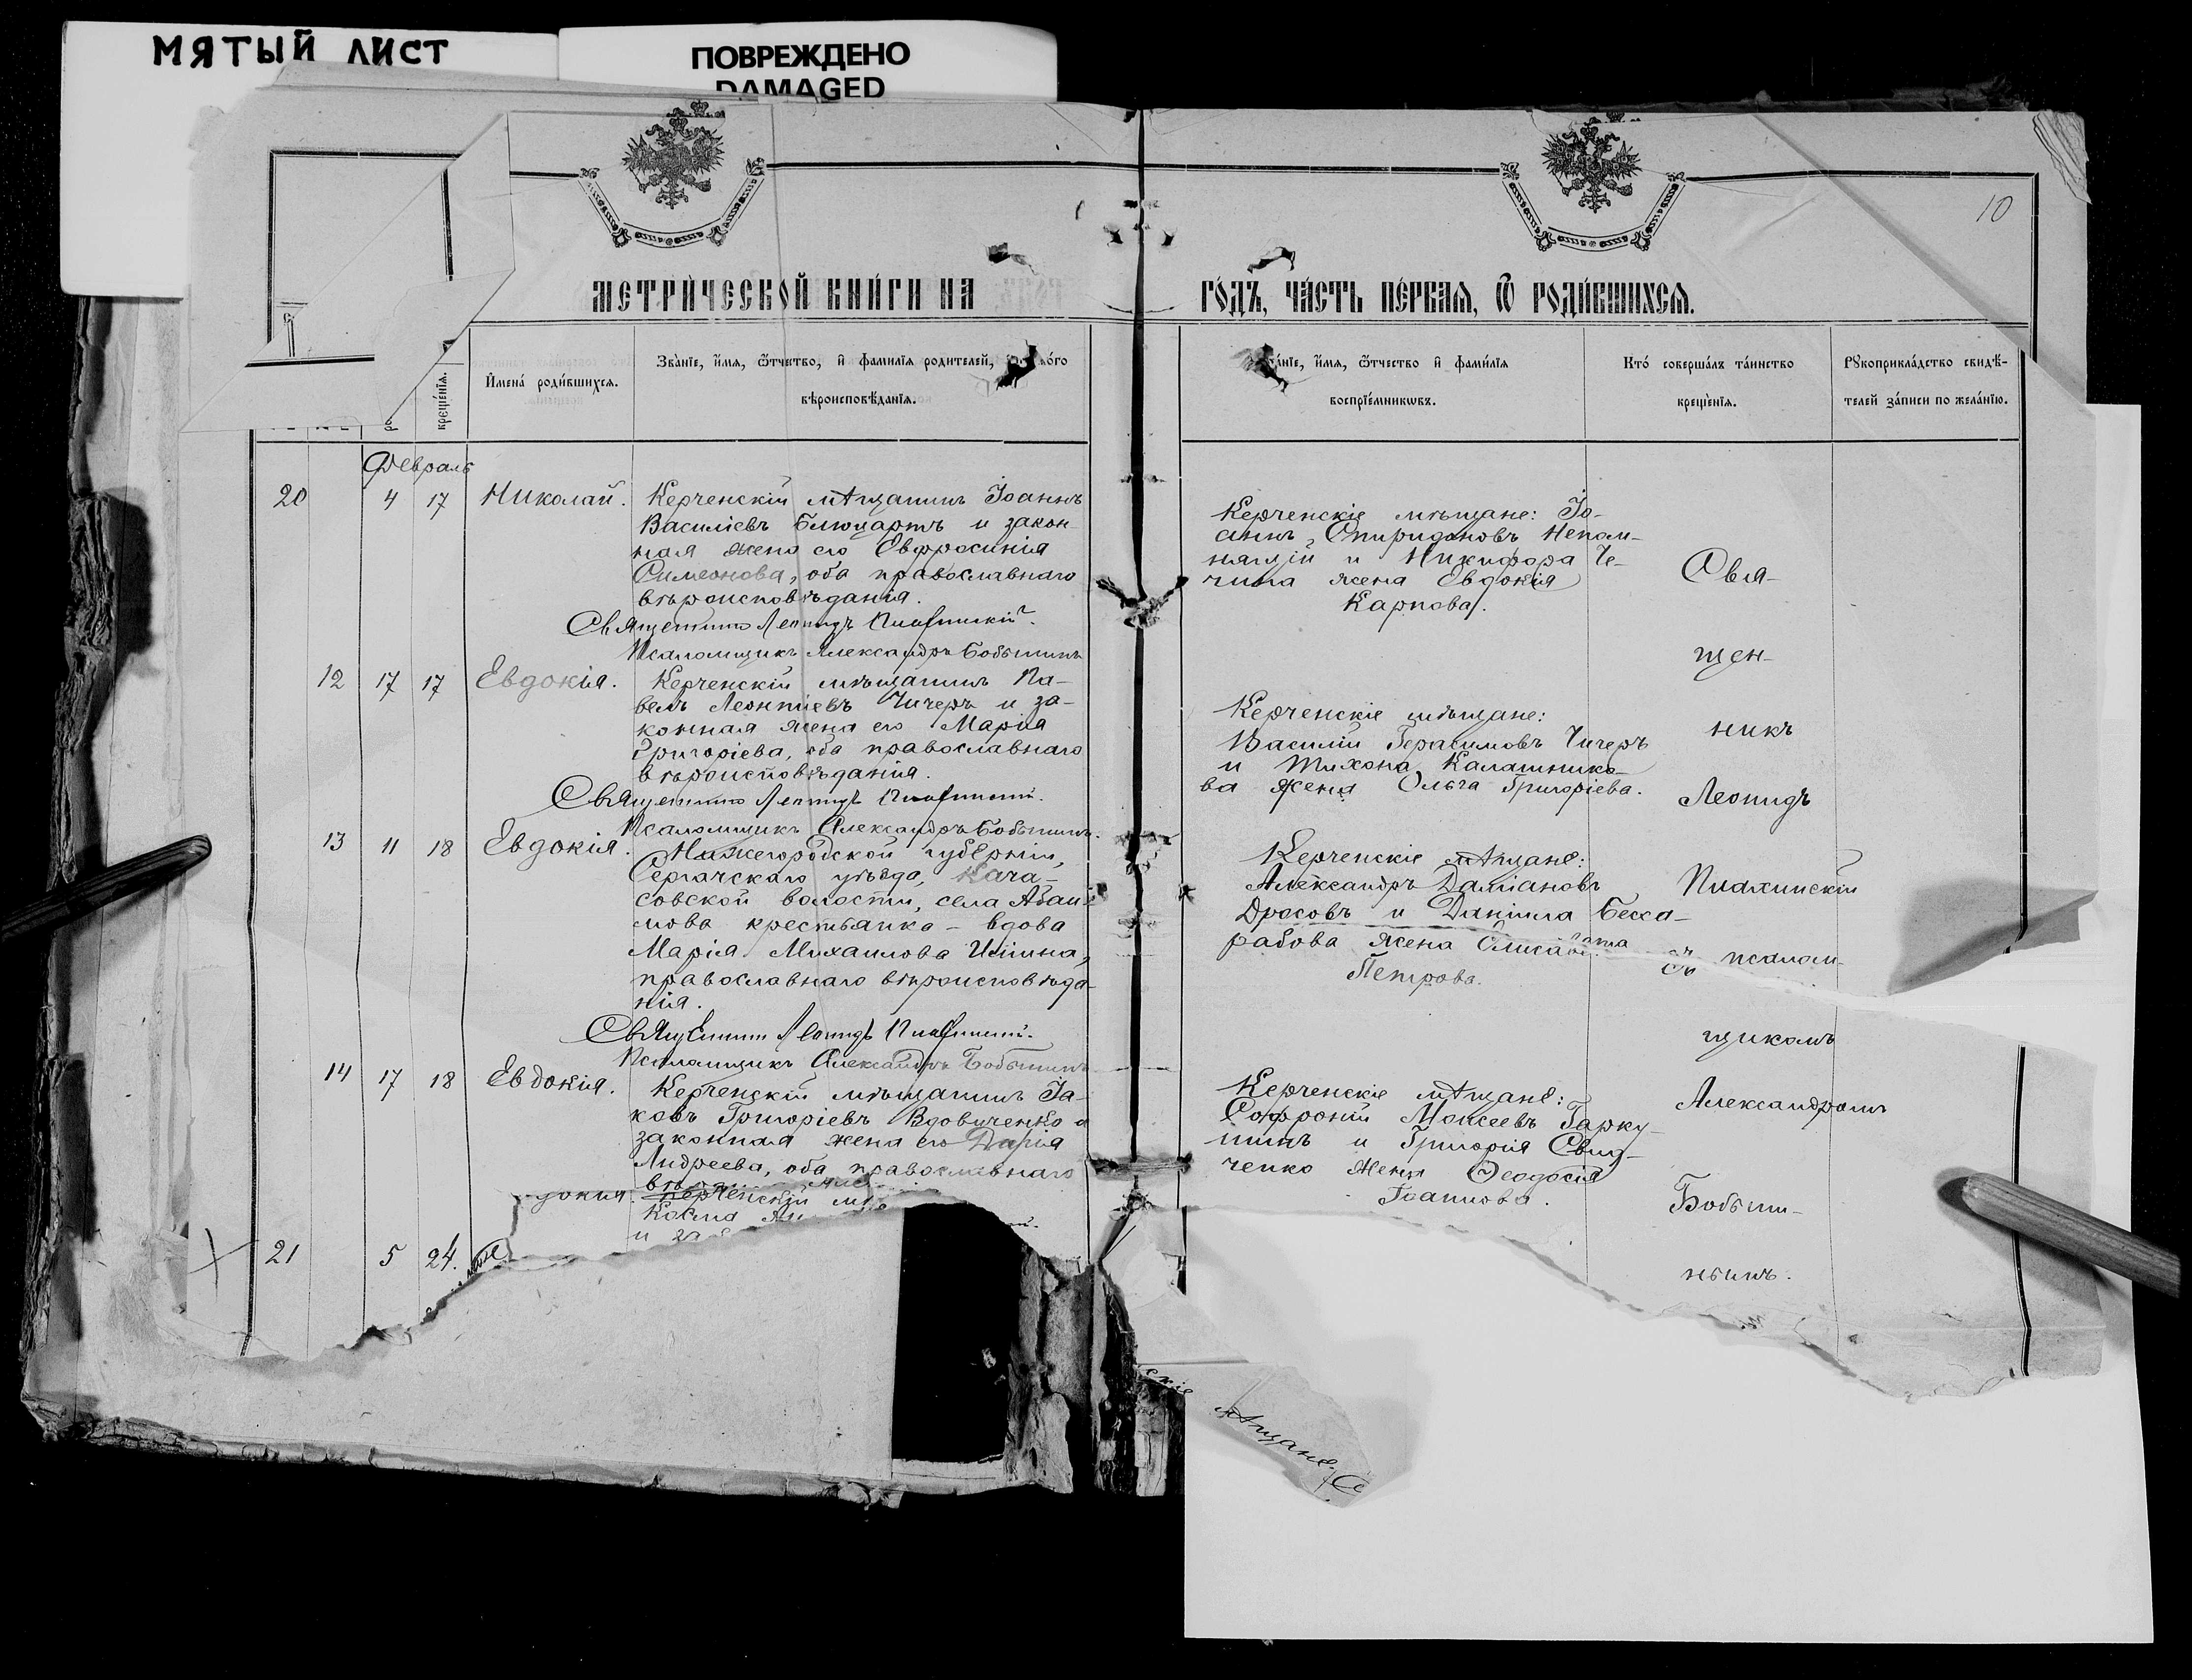 МЯТЫЙ ЛИСТ
ПОВРЕЖДЕНО
DAMAGED
10
МЕТРИ́ЧЕСКОЙ КНИ́ГИ НА
ГО́ДЪ, ЧА́СТЬ ПЕ́РВАЯ, Ѿ РОДИ́ВШИХСЯ.
креще́нїѧ.
И҆мена̀ роди́вшихсѧ.
Зва́нїе, и҆́мѧ, ѻ҆́тчество, и҆ фами́лїѧ роди́телей,
вѣроисповѣ́данїѧ.
и҆́мѧ, ѻ҆́тчество и҆ фами́лїѧ
воспрїе́мникѡвъ.
Кто̀ соверша́лъ та́инство
креще́нїѧ.
Рꙋкоприкла́дство свидѣ́-
телей за́писи по жела́нїю.
Февраль
20 4 17 Николай.
Керченскій мѣщанинъ Іоаннъ
Василіевъ и закон-
ная жена его Евфросинія
Симеонова, оба православнаго
вѣроисповѣданія.
Священникъ Леонидъ Пиахинскій.
Псаломщикъ Александръ Бобынинъ
Керченскіе мѣщане: Іо-
аннъ Спиридоновъ Непом-
нящій и Никифора Че-
чина жена Евдокія
Карпова.
12 17 17 Евдокія.
Керченскій мѣщанинъ Па-
велъ Леонтіевъ Чичеръ и за-
конная жена его Марія
Григоріева, оба православнаго
вѣроисповѣданія.
Священникъ Леонидъ Пиахинскій.
Псаломщикъ Александръ Бобынинъ.
Керченскіе мѣщане:
Василій Герасимовъ Чичеръ
и Тихона Калашнико-
ва жена Ольга Григоріева.
13 11 18 Евдокія.
Нижегородской губерніи,
Сергачскаго уѣзда, Кача-
совской волости, села Абаи-
мова крестьянка - вдова
Марія Михаилова
православнаго вѣроисповѣда-
нія.
Священникъ Леонидъ Пиахинскій.
Псаломщикъ Александръ Бобынинъ
Керченскіе мѣщане:
Александръ Даміановъ
Дросовъ и Даніила Бесса-
рабова жена Елисавета
Петрова.
14 17 18 Евдокія.
Керченскій мѣщанинъ Іа-
ковъ Григоріевъ Вдовиченко и
законная жена его Дарія
Андреева, оба православнаго
Керченскіе мѣщане:
Софроній Моисеевъ Гарку-
шинъ и Григорія Свид-
ченко жена Ѳеодосія
Іоаннова.
докія. Керченскій
Косма
и за
21 5 24.
Свя-
щен-
никъ
Леонидъ
Пиахинскій
съ псалом-
щикомъ
Александромъ
Бобыни-
нымъ.
скіе
мѣщане: